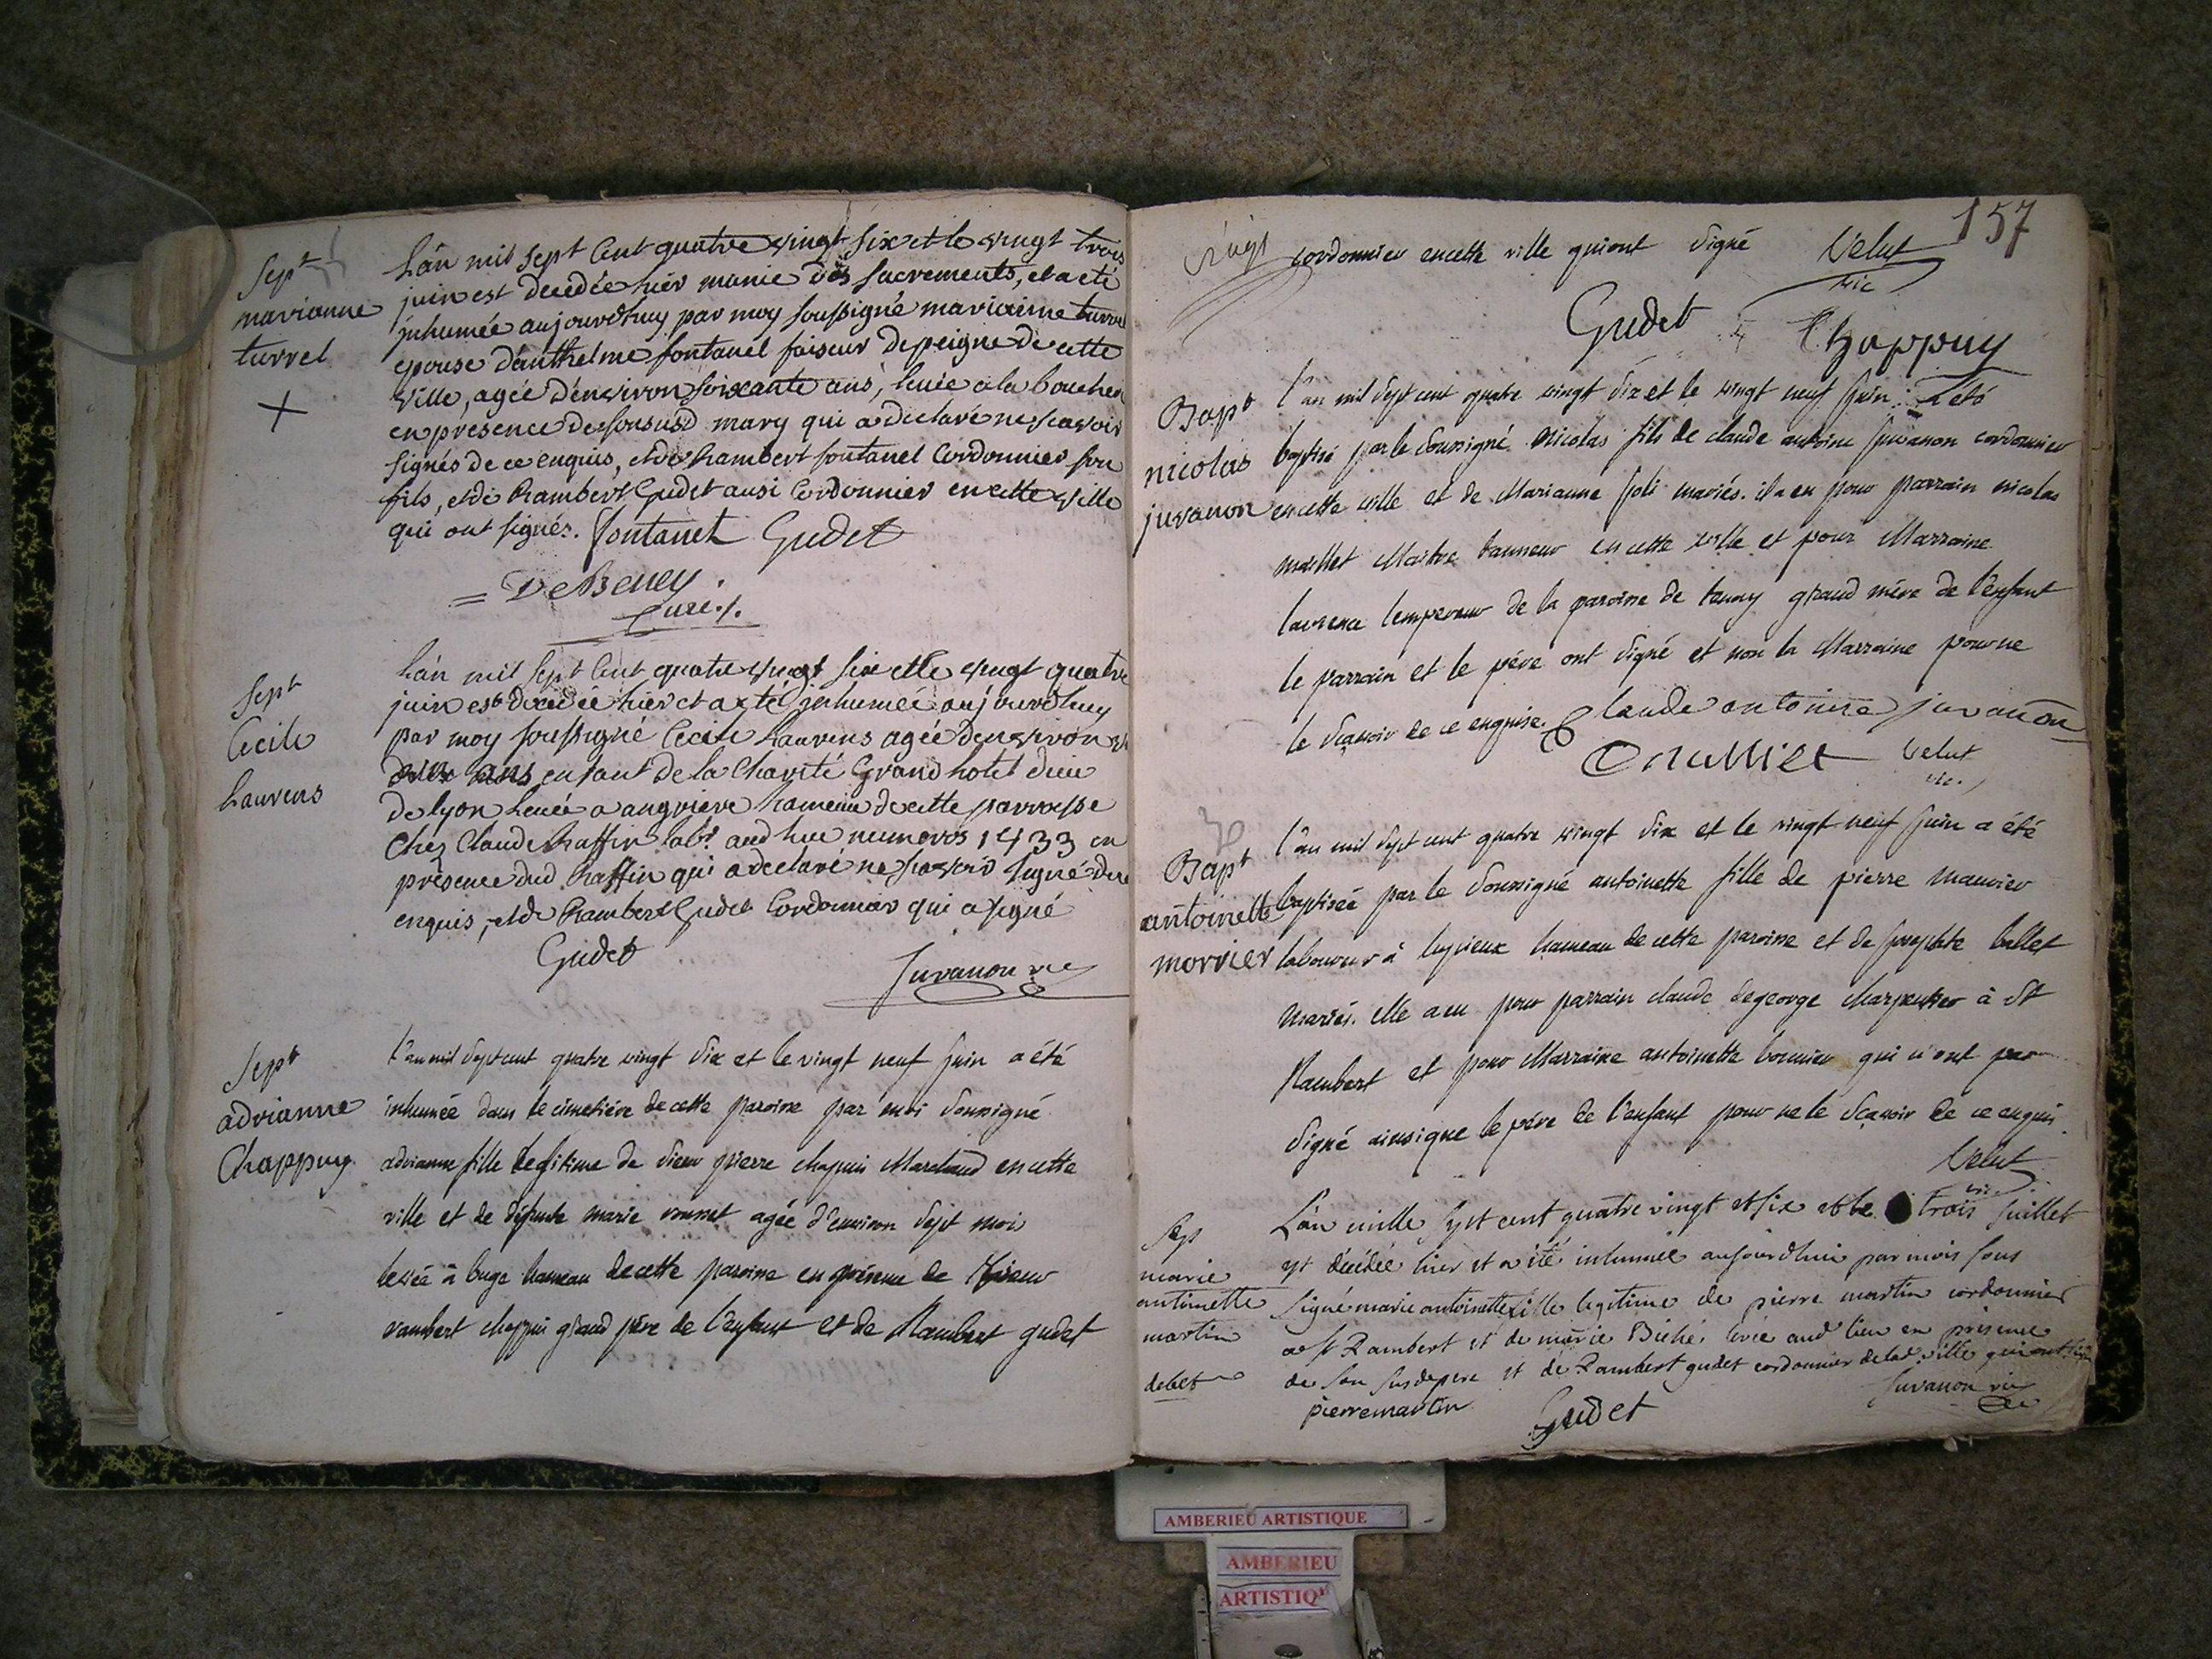 Sept
marianne
turrel
L'an mil sept Cent quatre vingt six et le vingt trois
juin est decedée hier munie des sacrements, et a eté
inhumée aujourdhuy par moy soussigné marianne turrel
epouse d'anthelme fontanel faiseur de peigne de cette
ville, agée d'environ soixante ans, levée a la
en presence de son susd mary qui a declaré ne scavoir
signés de ce enquis, et de Rambert fontanel Cordonnier son
fils, et de Rambert Gudet aussi Cordonnier en cette ville
qui ont signés. fontanel Gudet
= DeBeney.
Curé./.
Sept
Cecile
Laurens
L'an mil Sept Cent quatre vingt six et le vingt quatre
juin est decedée hier et a eté inhumée aujourdhuy
par moy soussigné Cecile Laurens agée d'environ
ans enfant de la Charité Grand hotel dieu
de lyon levée a angrieve hameau de cette parroisse
Chez Claude Raffin labr. aud lieu numeros 1433 en
presence dud Raffin qui a declaré ne scavoir signé de ce
enquis, et de Rambert Gudet Cordonnier qui a signé
Gudet
Juvanon vic
Sept
adrianne
Chappuy
l'an mil sept cent quatre vingt six et le vingt neuf juin a été
inhumée dans le cimetière de cette paroisse par moi soussigné
adrianne fille legitime de sieur pierre chapui Marchand en cette
ville et de défunte marie agée d'environ sept mois
levée à buge hameau de cette paroisse en présence de sieur
rambert chappui grand père de l'enfant et de Rambert gudet
157
cordonnier en cette ville qui ont signé Velut
vic
Gudet Chappuy
Bapt
nicolas
juvanon
l'an mil sept cent quatre vingt six et le vingt neuf juin a été
baptisé par le soussigné nicolas fils de claude antoine juvanon cordonnier
en cette ville et de Marianne joli mariés. il a eu pour parrain nicolas
maillet Maitre tanneur en cette ville et pour Marraine
laurence lempereur de la paroisse de tenay grand mère de l'enfant
le parrain et le père ont signé et non la Marraine pour ne
le sçavoir de ce enquise. Claude antoine juvanon
Maillet Velut
vic.
Bapt
antoinette
morrier
l'an mil sept cent quatre vingt six et le vingt neuf juin a été
baptisée par le soussigné antoinette fille de pierre maurier
laboureur à lupieux hameau de cette paroisse et de josephte ballet
Mariés. elle a eu pour parrain claude degeorge charpentier à St
Rambert et pour Marraine antoinette bonnier qui n'ont pas
signé ainsi que le père de l'enfant pour ne le sçavoir de ce enquis.
Velut
vic
Sep
marie
antoinette
martin
debet
L'an mille sept cent quatre vingt et six et le trois juillet
est décédée hier et a été inhumée aujourdhui par mois sous
signé marie antoinette fille legitime de pierre martin cordonnier
a st Rambert et de marie Biché levée aud lieu en presence
de son susd père et de Rambert gudet cordonnier de lad. ville qui ont signé
pierre martin Gudet Juvanon vic
AMBERIEU ARTISTIQUE
AMBERIEU
ARTISTIQ